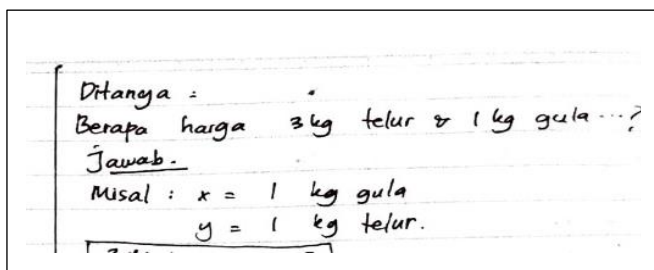 Ditanya :
Berapa harga 3 kg telur & 1 kg gula ...?
Jawab.
Misal : x = 1 kg gula
y = 1 kg telur.